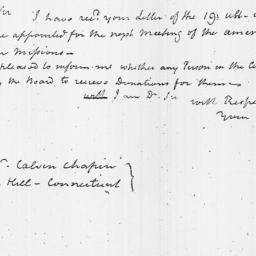 Sir I have recd your Letter of the 19th ult-
e appointed for the next Meeting of the amer
n Missions-
pleased to inform me whether any Person in the C
y the Board to receive Donations for them-
I am Dr Sir with Respe
Your
r. Calvin Chapin
Hill - Connecticut